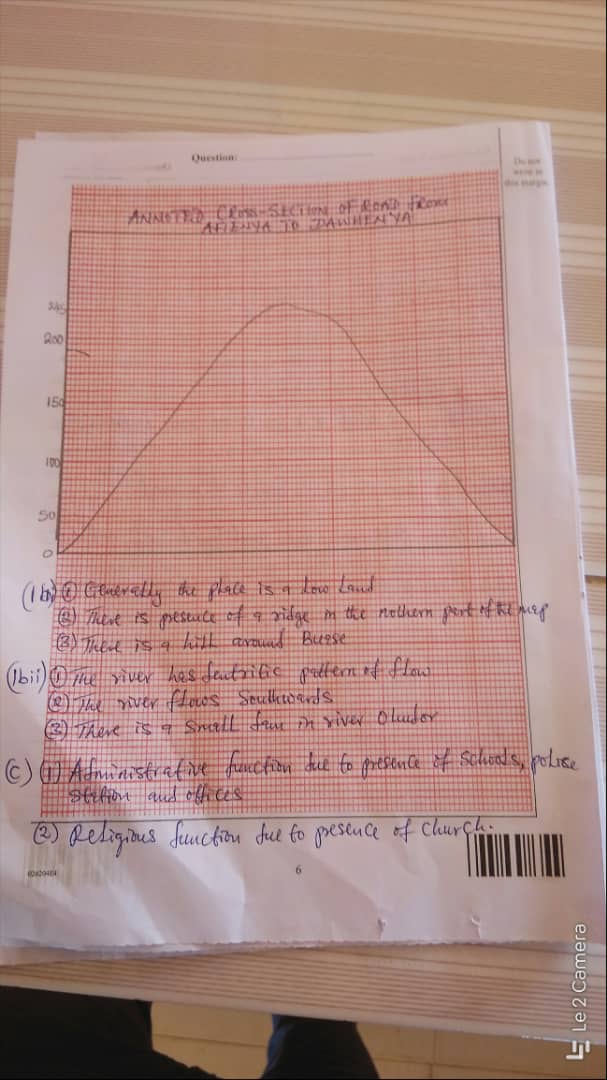 Question:
Do not
write in
this margin
ANNOTED CROSS-SECTION OF ROAD FROM
AFIENYA TO DAWHENYA
200
150
100
50
0
(1bi) ① Generally the place is a low land
② There is presence of a ridge in the nothern part of the map
③ There is a hill around Buese
(1bii) ① The river has dentritic pattern of flow
② The river flows Southwards
③ There is a small dam in river
(C) (1) Administrative function due to presence of Schools, police
station and offices
(2) Religious function due to presence of Church.
6
Le 2 Camera